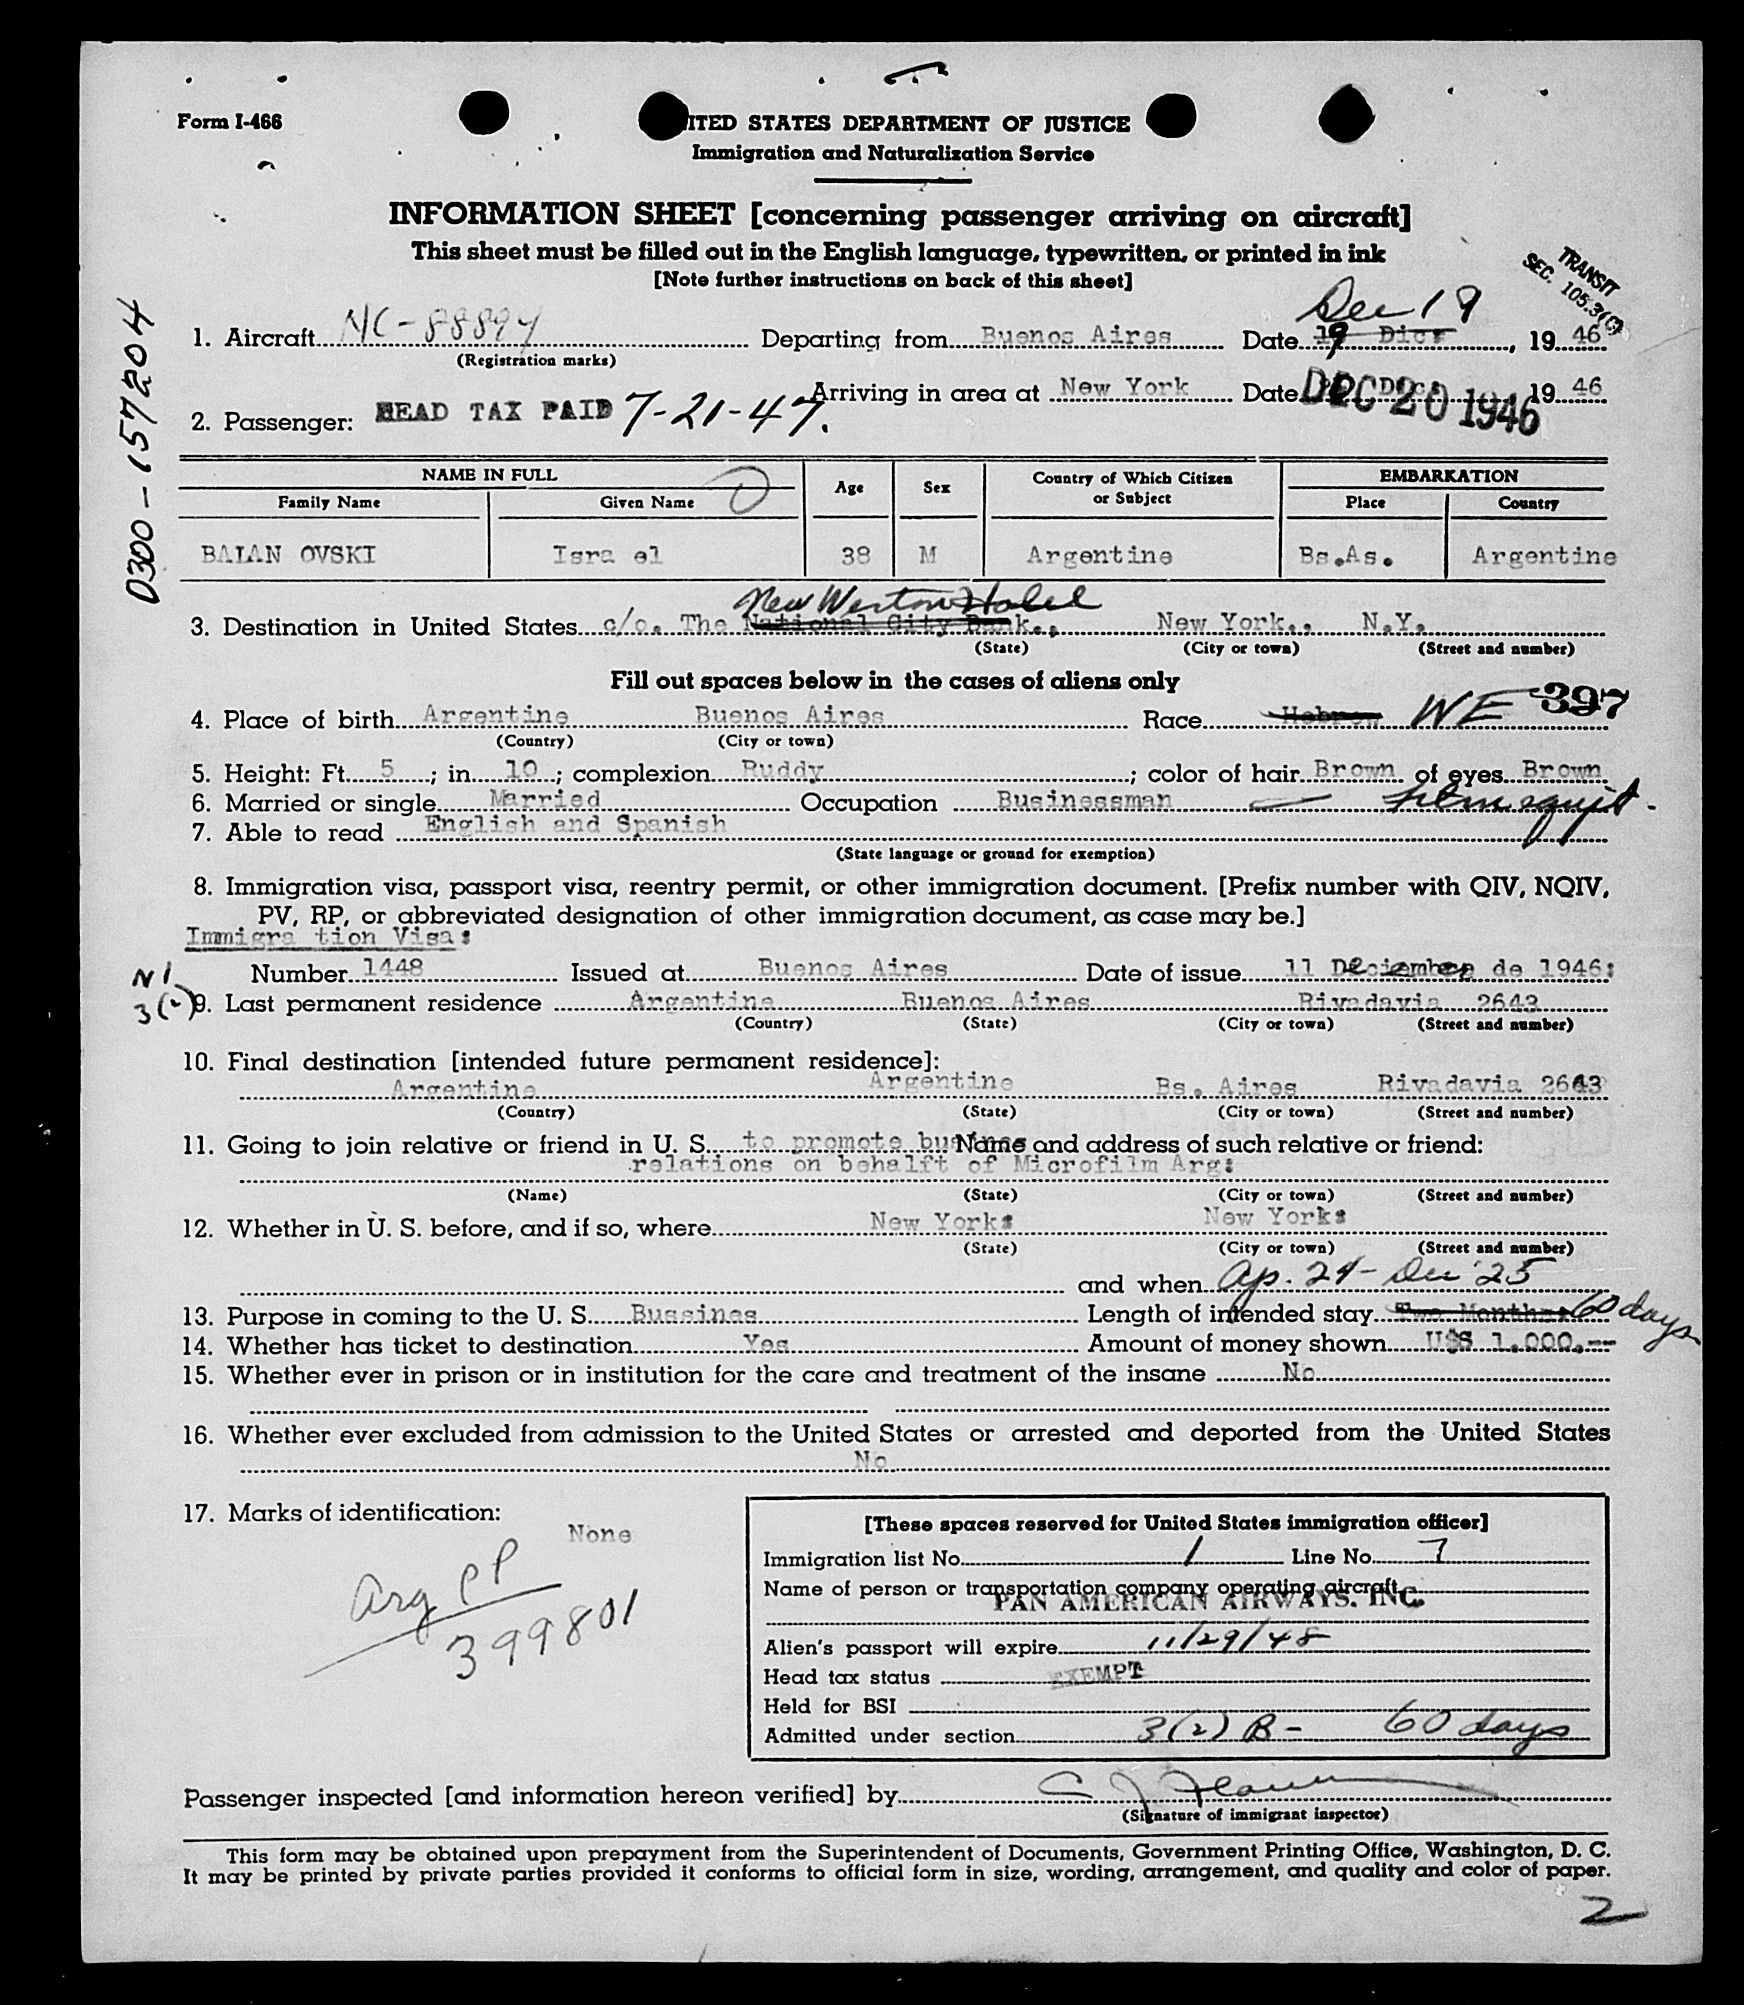 Form I-466
UNITED STATES DEPARTMENT OF JUSTICE
Immigration and Naturalization Service
INFORMATION SHEET [concerning passenger arriving on aircraft]
This sheet must be filled out in the English language, typewritten, or printed in ink
[Note further instructions on back of this sheet]
TRANSIT
SEC. 105.3(C)
D300-157204
Dec 19
1. Aircraft NC-88894 Departing from Buenos Aires Date 19 Dic: , 19 46
(Registration marks)
Arriving in area at New York Date DEC 20 1946 19 46
2. Passenger: HEAD TAX PAID 7-21-47.
NAME IN FULL Age Sex Country of Which Citizen or Subject EMBARKATION
Family Name Given Name Place Country
BAIAN OVSKI Isra el 38 M Argentine Bs.As. Argentine
New Weston Hotel
3. Destination in United States c/o. The National City Bank., New York., N.Y.
(State) (City or town) (Street and number)
Fill out spaces below in the cases of aliens only
397
4. Place of birth Argentine Buenos Aires Race Hebrew WE
(Country) (City or town)
5. Height: Ft. 5 ; in. 10 ; complexion Ruddy ; color of hair Brown of eyes Brown
6. Married or single Married Occupation Businessman
7. Able to read English and Spanish
(State language or ground for exemption)
8. Immigration visa, passport visa, reentry permit, or other immigration document. [Prefix number with QIV, NQIV,
PV, RP, or abbreviated designation of other immigration document, as case may be.]
Immigra tion Visa:
N I
3(2)
Number 1448 Issued at Buenos Aires Date of issue 11 Deciember de 1946:
9. Last permanent residence Argentina Buenos Aires Rivadavia 2643
(Country) (State) (City or town) (Street and number)
10. Final destination [intended future permanent residence]:
Argentine Argentine Bs. Aires Rivadavia 2643
(Country) (State) (City or town) (Street and number)
11. Going to join relative or friend in U. S. to promote busines Name and address of such relative or friend:
relations on behalft of Microfilm Arg:
(Name) (State) (City or town) (Street and number)
12. Whether in U. S. before, and if so, where New York: New York:
(State) (City or town) (Street and number)
and when Ap. 24 - Dec '25
13. Purpose in coming to the U. S. Bussines Length of intended stay Two Months 60 days
14. Whether has ticket to destination Yes Amount of money shown U$S 1.000.--
15. Whether ever in prison or in institution for the care and treatment of the insane No
16. Whether ever excluded from admission to the United States or arrested and deported from the United States
No
17. Marks of identification:
None
Arg PP
399801
[These spaces reserved for United States immigration officer]
Immigration list No. 1 Line No. 7
Name of person or transportation company operating aircraft
PAN AMERICAN AIRWAYS. INC.
Alien's passport will expire 11/29/48
Head tax status EXEMPT
Held for BSI
Admitted under section 3(2) B - 60 days
Passenger inspected [and information hereon verified] by
(Signature of immigrant inspector)
This form may be obtained upon prepayment from the Superintendent of Documents, Government Printing Office, Washington, D. C.
It may be printed by private parties provided it conforms to official form in size, wording, arrangement, and quality and color of paper.
2